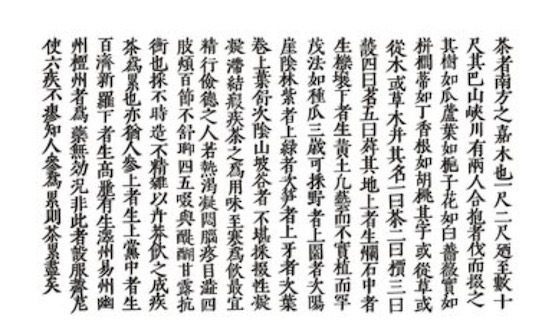 茶者南方之嘉木也一尺二尺廼至數十
尺其巴山峽川有兩人合抱者伐而掇之
其樹如瓜蘆葉如梔子花如白薔薇實如
栟櫚蒂如丁香根如胡桃其字或從草或
從木或草木并其名一曰茶二曰檟三曰
蔎四曰茗五曰荈其地上者生爛石中者
生櫟壤下者生黃土凡藝而不實植而罕
茂法如種瓜三歲可採野者上園者次陽
崖陰林紫者上綠者次笋者上牙者次葉
卷上葉舒次陰山坡谷者不堪採掇性凝
凝滯結瘕疾茶之爲用味至寒爲飲最宜
精行儉德之人若熱渴凝悶腦疼目澁四
肢煩百節不舒聊四五啜與醍醐甘露抗
衡也採不時造不精雜以卉莽飲之成疾
茶爲累也亦猶人參上者生上黨中者生
百濟新羅下者生高麗有生澤州易州幽
州檀州者爲藥無効況非此者設服薺苨
使六疾不瘳知人參爲累則茶累盡矣